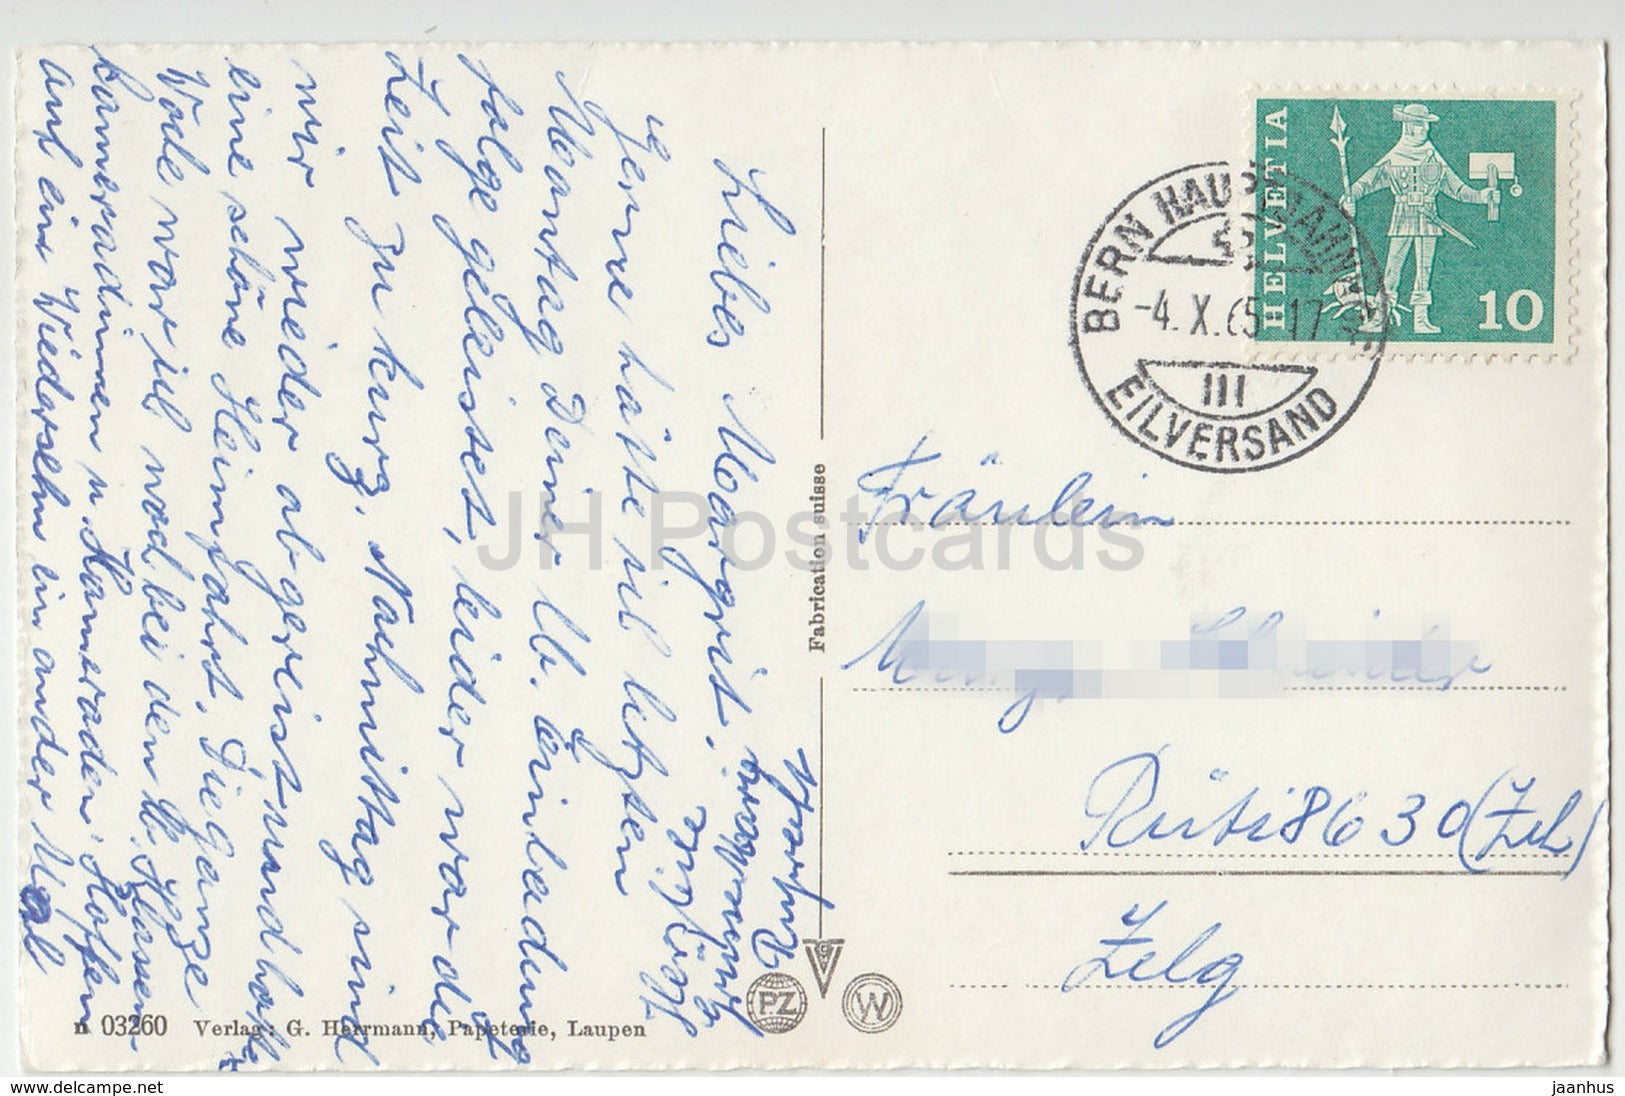 Liebes Margrit.
Gerne hätte ich letzten
Montag Deiner lb. Einladung
folge geleistet, leider war die
Zeit zu kurz, Nachmittag sind
wir wieder abgereist und hatte
eine schöne Heimfahrt. Die ganze
Wo war ich noch bei den lb. Klassen
kammeradinnen u Kammeraden. Hoffen
auf ein Wiedersehn ein ander Mal
Herzlich
grüsst
HELVETIA
10
BERN HAUPTBAHNHOF
-4.X.65 17
III
EILVERSAND
Fräulein
Rüti 8630 (Zch)
Zelg
Fabrication suisse
PZ
W
n 03260 Verlag: G. Herrmann, Papeterie, Laupen
JH Postcards
www.delcampe.net
jaanhus